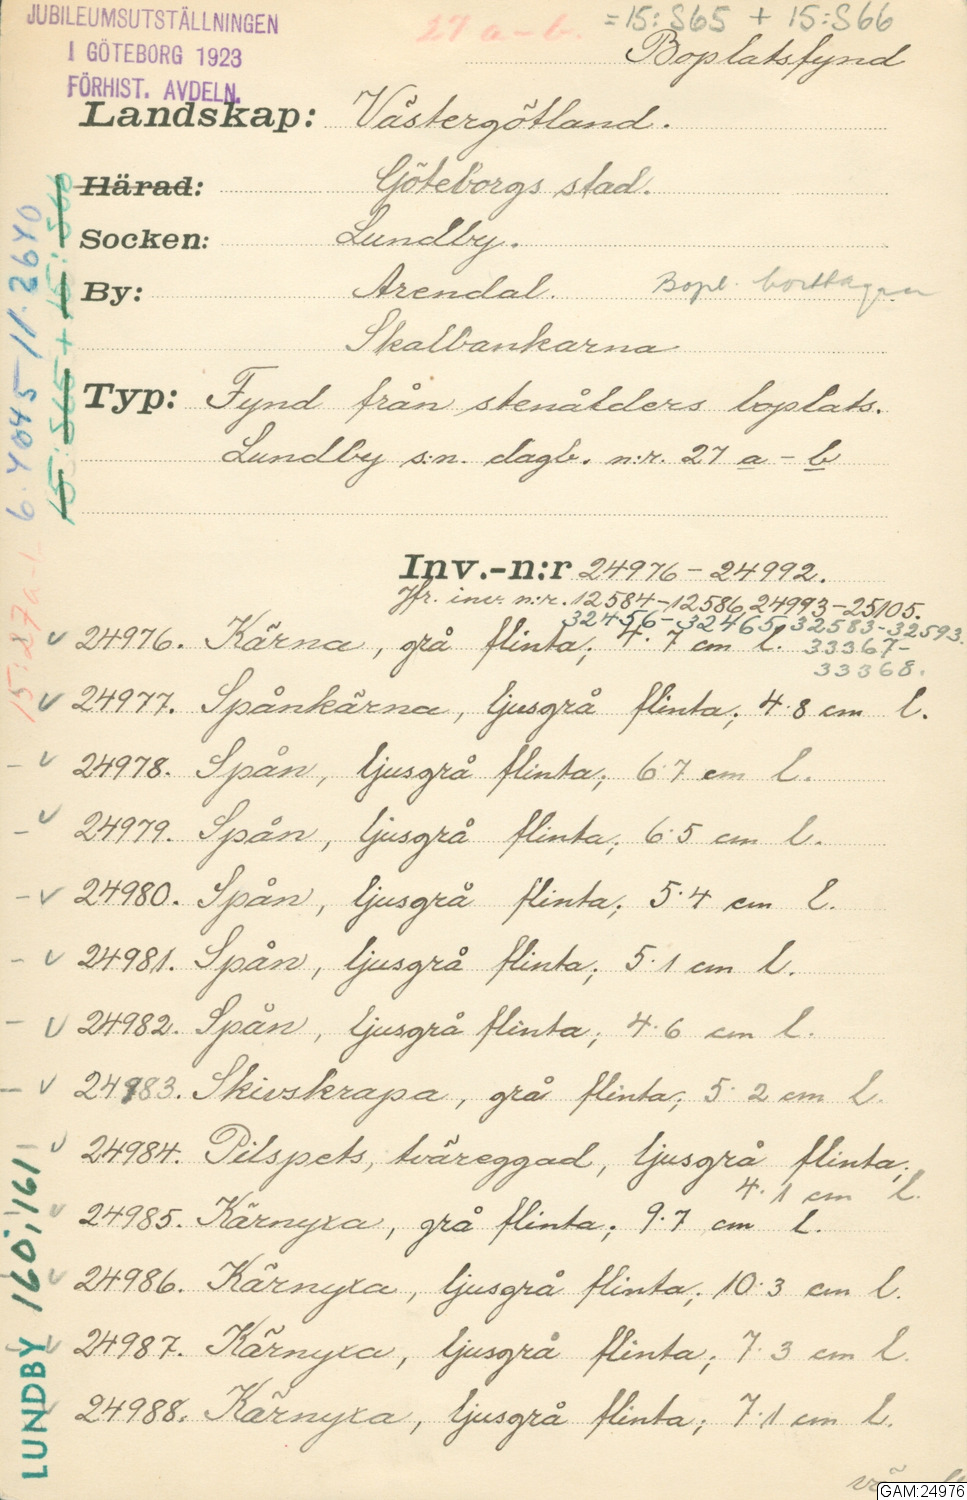 JUBILEUMSUTSTÄLLNINGEN
I GÖTEBORG 1923
FÖRHIST. AVDELN.
27 a-b.
=15:S65 + 15:S66
Boplatsfynd
Landskap: Västergötland.
Härad: Göteborgs stad.
Socken: Lundby.
By: Arendal. Bopl. borttagen
Skalbankarna
Typ: Fynd från stenålders boplats.
Lundby s:n. dagb. n:r. 27 a - b
Inv.-n:r 24976-24992.
Jfr. inv. n:r. 12584-12586, 24993-25105.
32456-32465, 32583-32593.
33367-
33368.
24976. Kärna, grå flinta; 4.7 cm l.
24977. Spånkärna, ljusgrå flinta; 4.8 cm l.
24978. Spån, ljusgrå flinta; 6.7 cm l.
24979. Spån, ljusgrå flinta; 6.5 cm l.
24980. Spån, ljusgrå flinta; 5.4 cm l.
24981. Spån, ljusgrå flinta; 5.1 cm l.
24982. Spån, ljusgrå flinta; 4.6 cm l.
24983. Skivskrapa, grå flinta; 5.2 cm l.
24984. Pilspets, tväreggad, ljusgrå flinta;
4.1 cm l.
24985. Kärnyxa, grå flinta; 9.7 cm l.
24986. Kärnyxa, ljusgrå flinta; 10.3 cm l.
24987. Kärnyxa, ljusgrå flinta; 7.3 cm l.
24988. Kärnyxa, ljusgrå flinta; 7.1 cm l.
15:S65 + 15:S66
LUNDBY 160, 161
GAM:24976